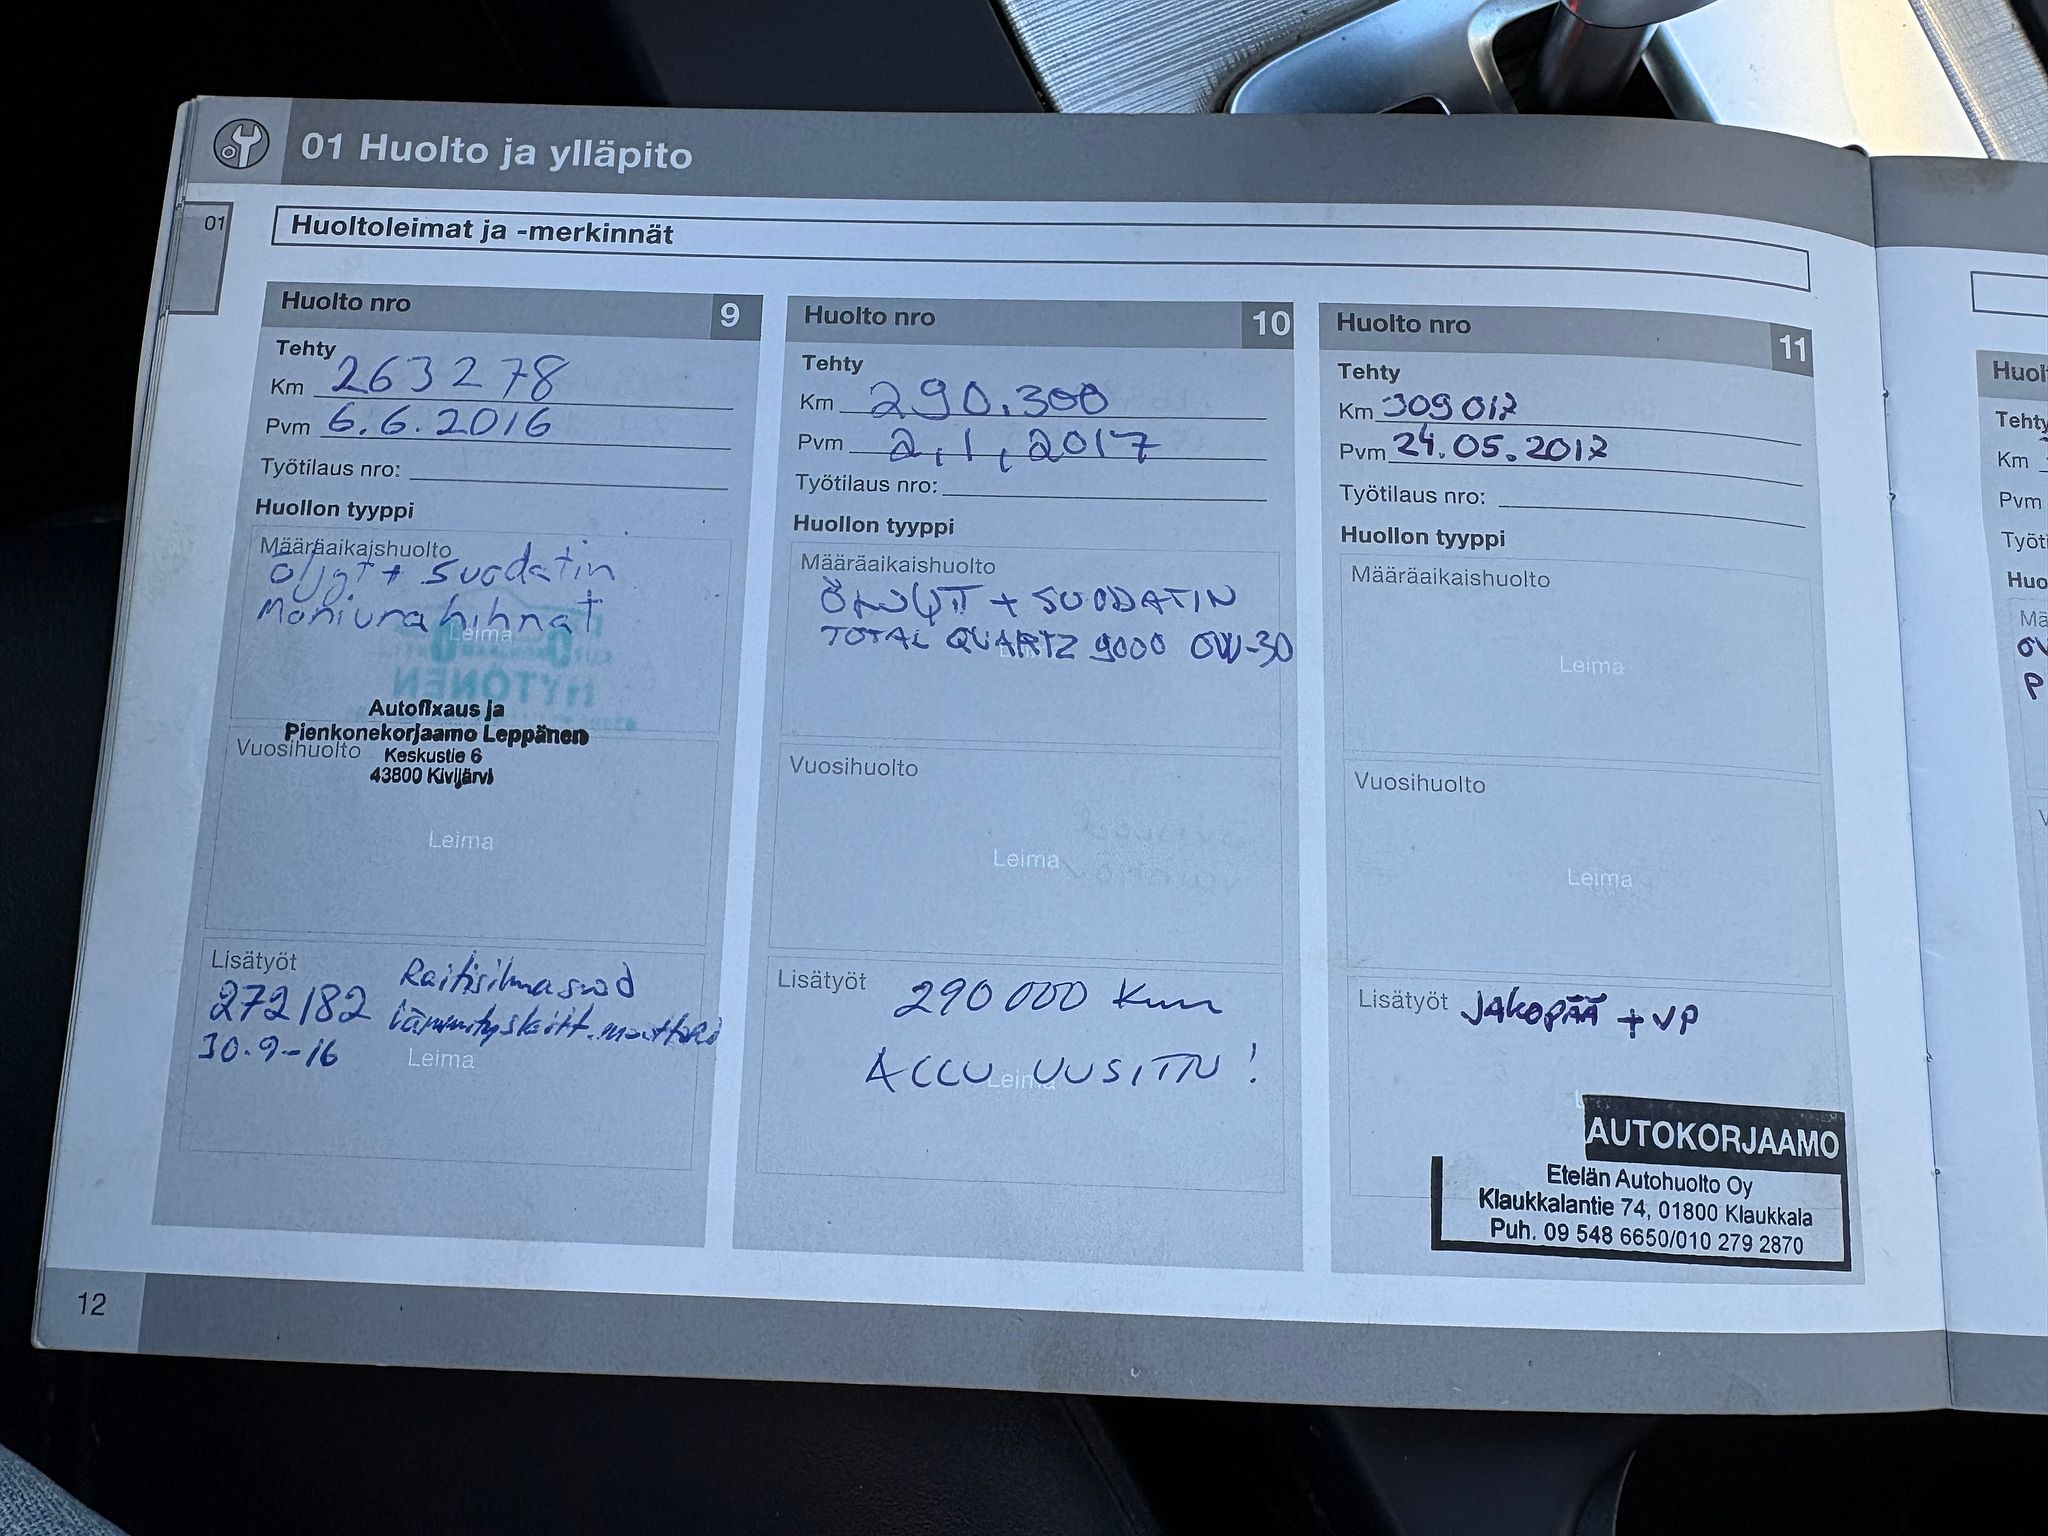 01 Huolto ja ylläpito
01
Huoltoleimat ja -merkinnät
Huolto nro 9
Tehty
Km 263278
Pvm 6.6.2016
Työtilaus nro:
Huollon tyyppi
Määräaikaishuolto
Öljyt + suodatin
Moniurahihnat
Leima
Autofixaus ja
Pienkonekorjaamo Leppänen
Keskustie 6
43800 Kivijärvi
Vuosihuolto
Leima
Lisätyöt
Raitisilmasuod
272182
30.9-16
Leima
Huolto nro 10
Tehty
Km 290.300
Pvm 2,1,2017
Työtilaus nro:
Huollon tyyppi
Määräaikaishuolto
ÖLJYT + SUODATIN
TOTAL QUARTZ 9000 0W-30
Vuosihuolto
Leima
Lisätyöt
290 000 Km
ACCU UUSITTU!
Leima
Huolto nro 11
Tehty
Km 309017
Pvm 24.05.2017
Työtilaus nro:
Huollon tyyppi
Määräaikaishuolto
Leima
Vuosihuolto
Leima
Lisätyöt JAKOPÄÄ + VP
AUTOKORJAAMO
Etelän Autohuolto Oy
Klaukkalantie 74, 01800 Klaukkala
Puh. 09 548 6650/010 279 2870
12
Tehty
Km
Pvm